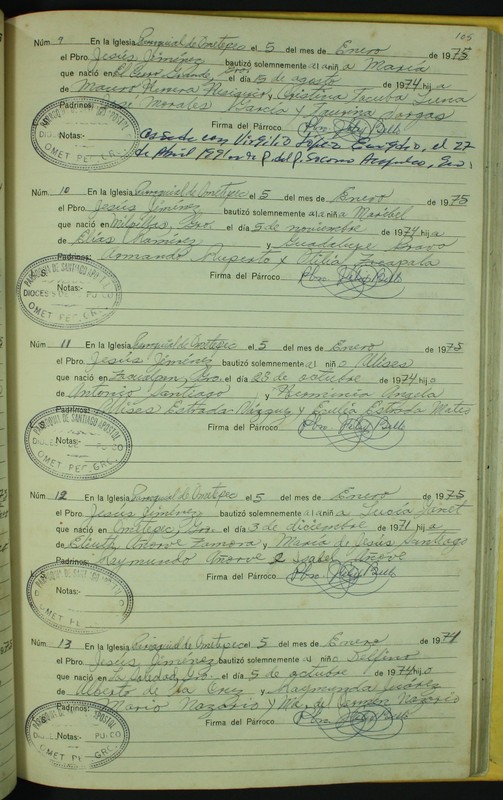 105
Núm. 9 En la Iglesia Parroquial de Ometepec el 5 del mes de Enero de 1975
el Pbro. Jesús Jiménez bautizó solemnemente a la niña María
que nació en El Cerro Grande, Gro. el día 15 de agosto de 1974 hija
de Mauro Herrera y Cristina Tacuba Luna
Padrinos: José Morales García y Vargas
Firma del Párroco
Notas: Casada con Virgilio López el 27
de Abril 1991 en la P. del P. Socorro Acapulco, Gro.
PARROQUIA DE SANTIAGO APOSTOL
OMETEPEC, GRO.
Núm. 10 En la Iglesia Parroquial de Ometepec el 5 del mes de Enero de 1975
el Pbro. Jesús Jiménez bautizó solemnemente a la niña Maribel
que nació en Milpillas, Gro. el día 5 de noviembre de 1974 hija
de Elías Ramírez y Guadalupe Bravo
Padrinos: Armando Ruperto y Otilia Zacapala
Firma del Párroco
Notas:
PARROQUIA DE SANTIAGO APOSTOL
OMETEPEC, GRO.
Núm. 11 En la Iglesia Parroquial de Ometepec el 5 del mes de Enero de 1975
el Pbro. Jesús Jiménez bautizó solemnemente al niño Ulises
que nació en Zacualpan, Gro. el día 23 de octubre de 1974 hijo
de Antonio Santiago y Herminia Angela
Padrinos: Ulises Estrada Vázquez y Estrada Mateo
Firma del Párroco
Notas:
PARROQUIA DE SANTIAGO APOSTOL
OMETEPEC, GRO.
Núm. 12 En la Iglesia Parroquial de Ometepec el 5 del mes de Enero de 1975
el Pbro. Jesús Jiménez bautizó solemnemente a la niña Lucía Janet
que nació en Ometepec, Gro. el día 3 de diciembre de 1971 hija
de Añorve Zamora y María de Jesús Santiago
Padrinos: Raymundo Añorve e Isabel Añorve
Firma del Párroco
Notas:
Núm. 13 En la Iglesia Parroquial de Ometepec el 5 del mes de Enero de 1974
el Pbro. Jesús Jiménez bautizó solemnemente al niño Delfino
que nació en La Soledad, Gro. el día 5 de octubre de 1974 hijo
de Alberto de la Cruz y Raymunda Juárez
Padrinos: Mario Nazario y Ma. del Carmen Nazario
Firma del Párroco
Notas:
PARROQUIA DE SANTIAGO APOSTOL
OMETEPEC, GRO.